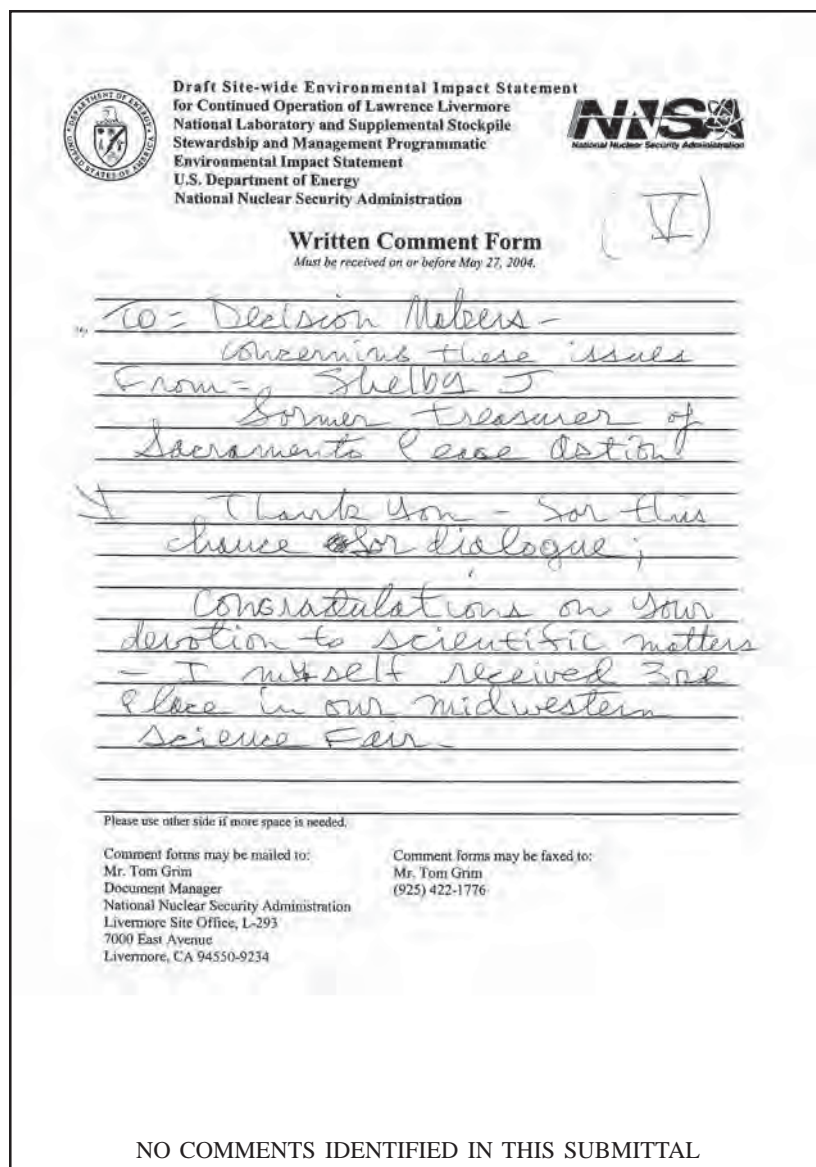 Draft Site-wide Environmental Impact Statement
for Continued Operation of Lawrence Livermore
National Laboratory and Supplemental Stockpile
Stewardship and Management Programmatic
Environmental Impact Statement
U.S. Department of Energy
National Nuclear Security Administration
DEPARTMENT OF ENERGY
UNITED STATES OF AMERICA
NNSA
National Nuclear Security Administration
(V)
Written Comment Form
Must be received on or before May 27, 2004.
To = Decision Makers -
concerning these issues
From =, Shelby J
former treasurer of
Sacramento Peace Action
Thank You - for this
chance for dialogue;
Congratulations on your
devotion to scientific matters
- I myself received 3rd
Place in our midwestern
Science Fair -
Please use other side if more space is needed.
Comment forms may be mailed to:
Mr. Tom Grim
Document Manager
National Nuclear Security Administration
Livermore Site Office, L-293
7000 East Avenue
Livermore, CA 94550-9234
Comment forms may be faxed to:
Mr. Tom Grim
(925) 422-1776
NO COMMENTS IDENTIFIED IN THIS SUBMITTAL